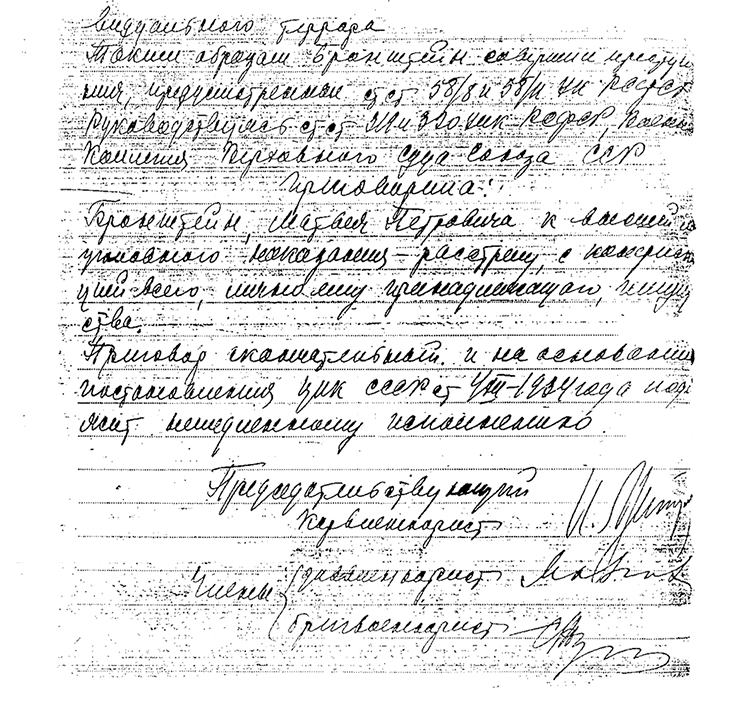 видуального террора
Таким образом Бронштейн совершил преступ
ния, предусмотренные ст.ст. 58/8 и 58/11 УК РСФСР
Руководствуясь ст.ст. 319 и 320 УПК РСФСР, Военн
Коллегия Верховного Суда Союза ССР
Приговорила:
Бронштейн, Матвея Петровича к высшей
уголовного наказания – расстрелу, с конфиска
цией всего, лично ему принадлежащого, имуще
ства.
Приговор окончательный и на основании
постановления ЦИК СССР от 1/XII–1934 года подл
жит немедленному исполнению.
Председательствующий
Корвоенюрист
Члены
диввоенюрист
бригвоенюрист